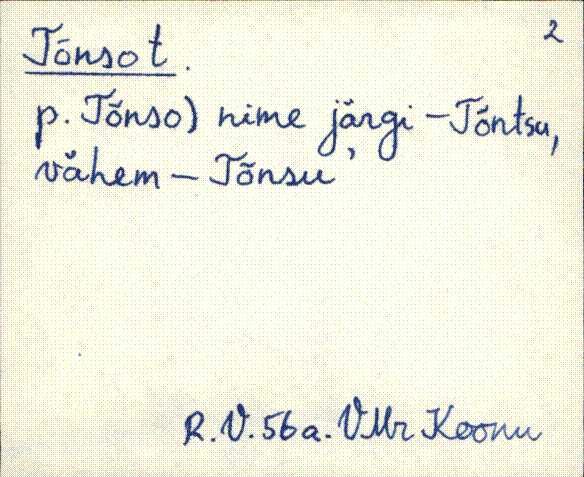 2
Tõnsot.
p. Tõnso) nime järgi – Tõntsu,
vähem – Tõnsu’
R.V. 56a. VMr Koonu